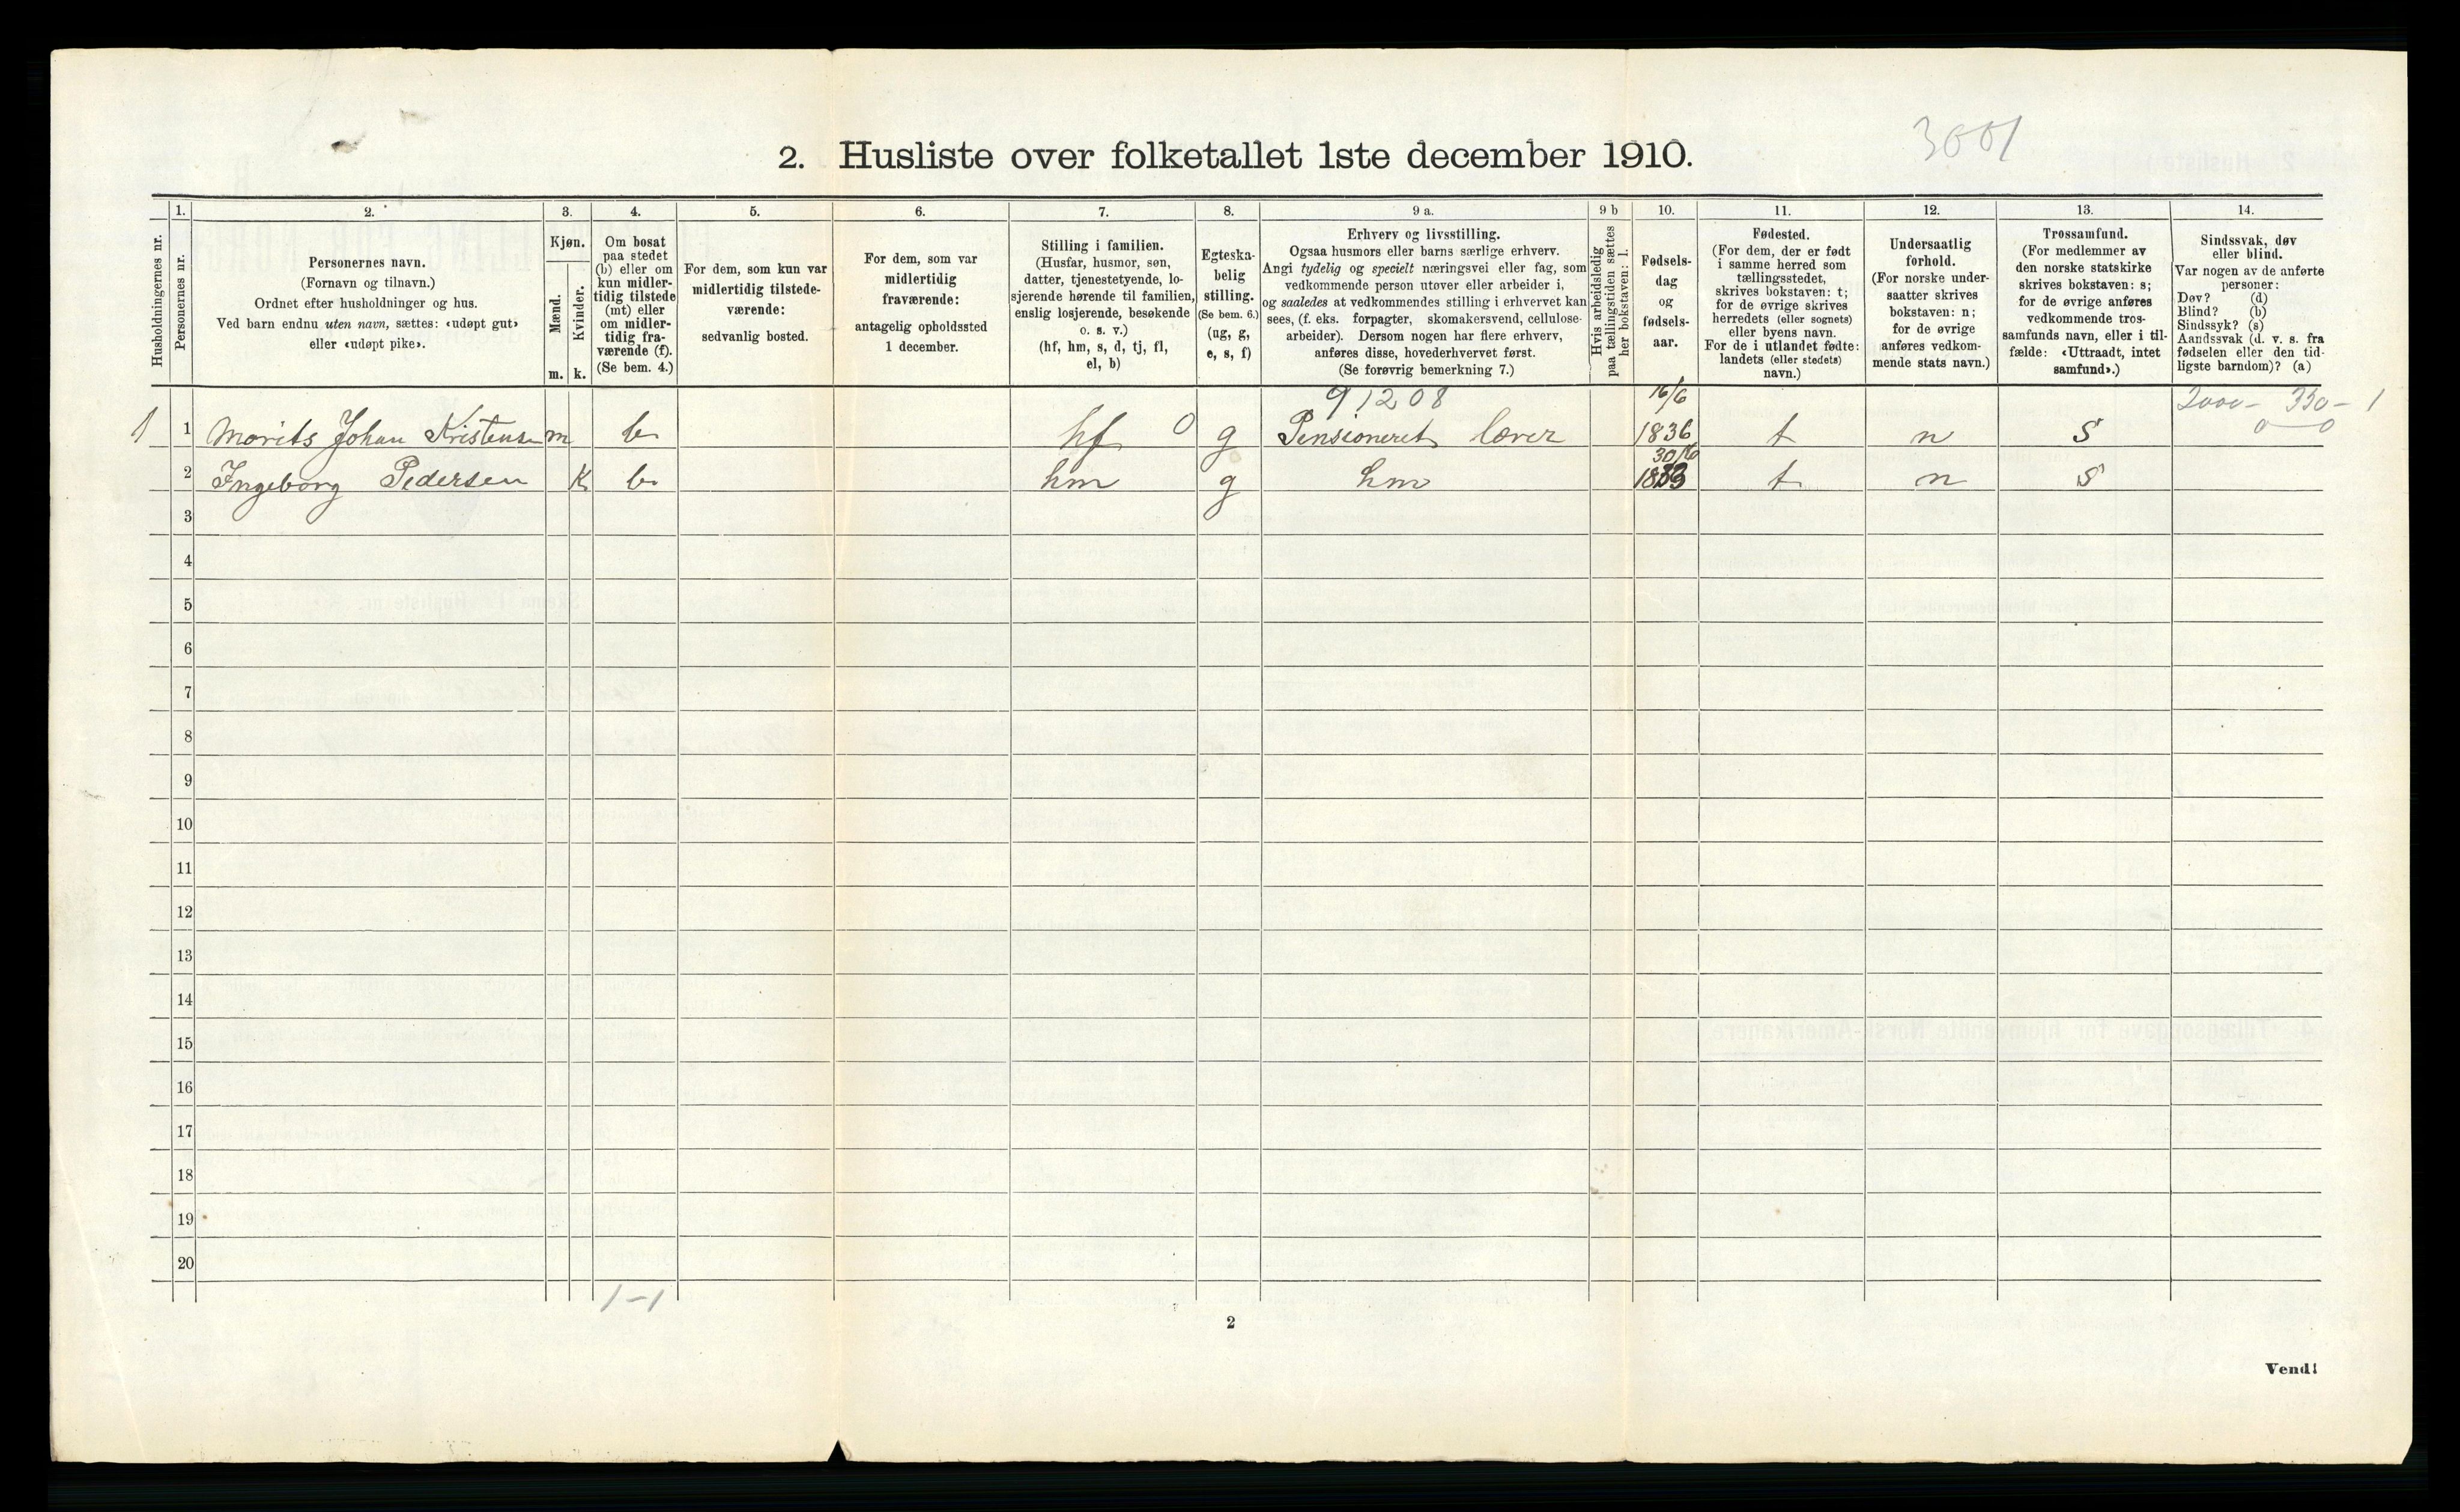 3001
2. Husliste over folketallet 1ste december 1910.
Husholdningernes nr.
1.
Personernes nr.
2.
Personernes navn.
(Fornavn og tilnavn.)
Ordnet efter husholdninger og hus.
Ved barn endnu uten navn, sættes: «udøpt gut»
eller «udøpt pike».
3.
Kjøn.
Mænd.
Kvinder.
m. k.
4.
Om bosat
paa stedet
(b) eller om
kun midler-
tidig tilstede
(mt) eller
om midler-
tidig fra-
værende (f).
(Se bem. 4.)
5.
For dem, som kun var
midlertidig tilstede-
værende:
sedvanlig bosted.
6.
For dem, som var
midlertidig
fraværende:
antagelig opholdssted
1 december.
7.
Stilling i familien.
(Husfar, husmor, søn,
datter, tjenestetyende, lo-
sjerende hørende til familien,
enslig losjerende, besøkende
o. s. v.)
(hf, hm, s, d, tj, fl,
el, b)
8.
Egteska-
belig
stilling.
(Se bem. 6.)
(ug, g,
e, s, f)
9 a.
Erhverv og livsstilling.
Ogsaa husmors eller barns særlige erhverv.
Angi tydelig og specielt næringsvei eller fag, som
vedkommende person utøver eller arbeider i,
og saaledes at vedkommendes stilling i erhvervet kan
sees, (f. eks. forpagter, skomakersvend, cellulose-
arbeider). Dersom nogen har flere erhverv,
anføres disse, hovederhvervet først.
(Se forøvrig bemerkning 7.)
9 b
Hvis arbeidsledig
paa tællingstiden sættes
her bokstaven: l.
10.
Fødsels-
dag
og
fødsels-
aar.
11.
Fødested.
(For dem, der er født
i samme herred som
tællingsstedet,
skrives bokstaven: t;
for de øvrige skrives
herredets (eller sognets)
eller byens navn.
For de i utlandet fødte:
landets (eller stedets)
navn.)
12.
Undersaatlig
forhold.
(For norske under-
saatter skrives
bokstaven: n;
for de øvrige
anføres vedkom-
mende stats navn.)
13.
Trossamfund.
(For medlemmer av
den norske statskirke
skrives bokstaven: s;
for de øvrige anføres
vedkommende tros-
samfunds navn, eller i til-
fælde: «Uttraadt, intet
samfund».)
14.
Sindssvak, døv
eller blind.
Var nogen av de anførte
personer:
Døv? (d)
Blind? (b)
Sindssyk? (s)
Aandssvak (d. v. s. fra
fødselen eller den tid-
ligste barndom)? (a)
91208 16/6 2000 - 350 - 1
1 1 Morits Johan Kristensen m b hf 0 g Pensioneret lærer 1836 t n S 0 0
30/6
2 Ingeborg Pedersen K b hm g hm 1833 t n S
3
4
5
6
7
8
9
10
11
12
13
14
15
16
17
18
19
20
1-1
2
Vend!